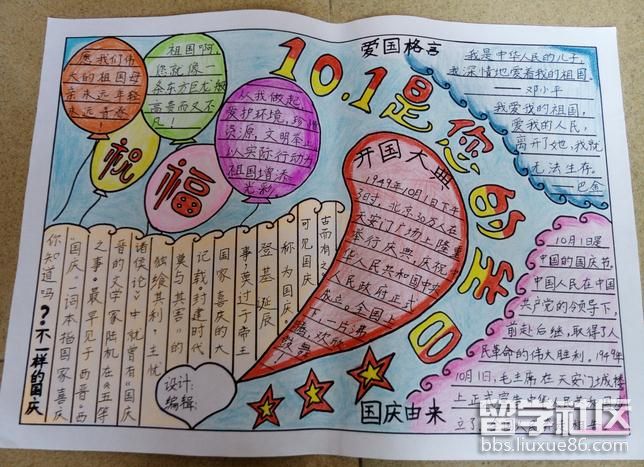 愿我们伟
大的祖国母
亲永远年轻
永远青春！
祖国啊，
您就像一
条东方巨龙
高贵而又不
凡！
祝
福
从我做起
爱护环境，珍惜
资源，文明举止
以实际行动为
祖国增添
光彩
10.1是您的生日
爱国格言
我是中华人民的儿子，
我深情地爱着我的祖国。
——邓小平
我爱我的祖国，
爱我的人民，
离开了她，我就
无法生存。
——巴金
开国大典
1949年10月1日下午
3时，北京30万人在
天安门广场上隆重
举行庆典，庆祝中
华人民共和国中央
人民政府正式
成立。全国上
下，一片沸
腾，欢欣
鼓舞！
10月1日是
中国的国庆节。
中国人民在中国
共产党的领导下，
前赴后继，取得了人
民革命的伟大胜利。1949年
10月1日，毛主席在天安门城楼
国庆由来
你知道吗？不一样的国庆
"国庆"一词本指国家喜庆
之事，最早见于西晋。西
晋的文学家陆机在《五等
诸侯论》中就曾有"国庆
独飨其利，主忧
莫与其害"的
记载。封建时代
国家喜庆的大
事莫过于帝王
登基、诞辰
称为国庆。
可见国庆
古而有之
设计：
编辑：
留学社区
bbs.liuxue86.com